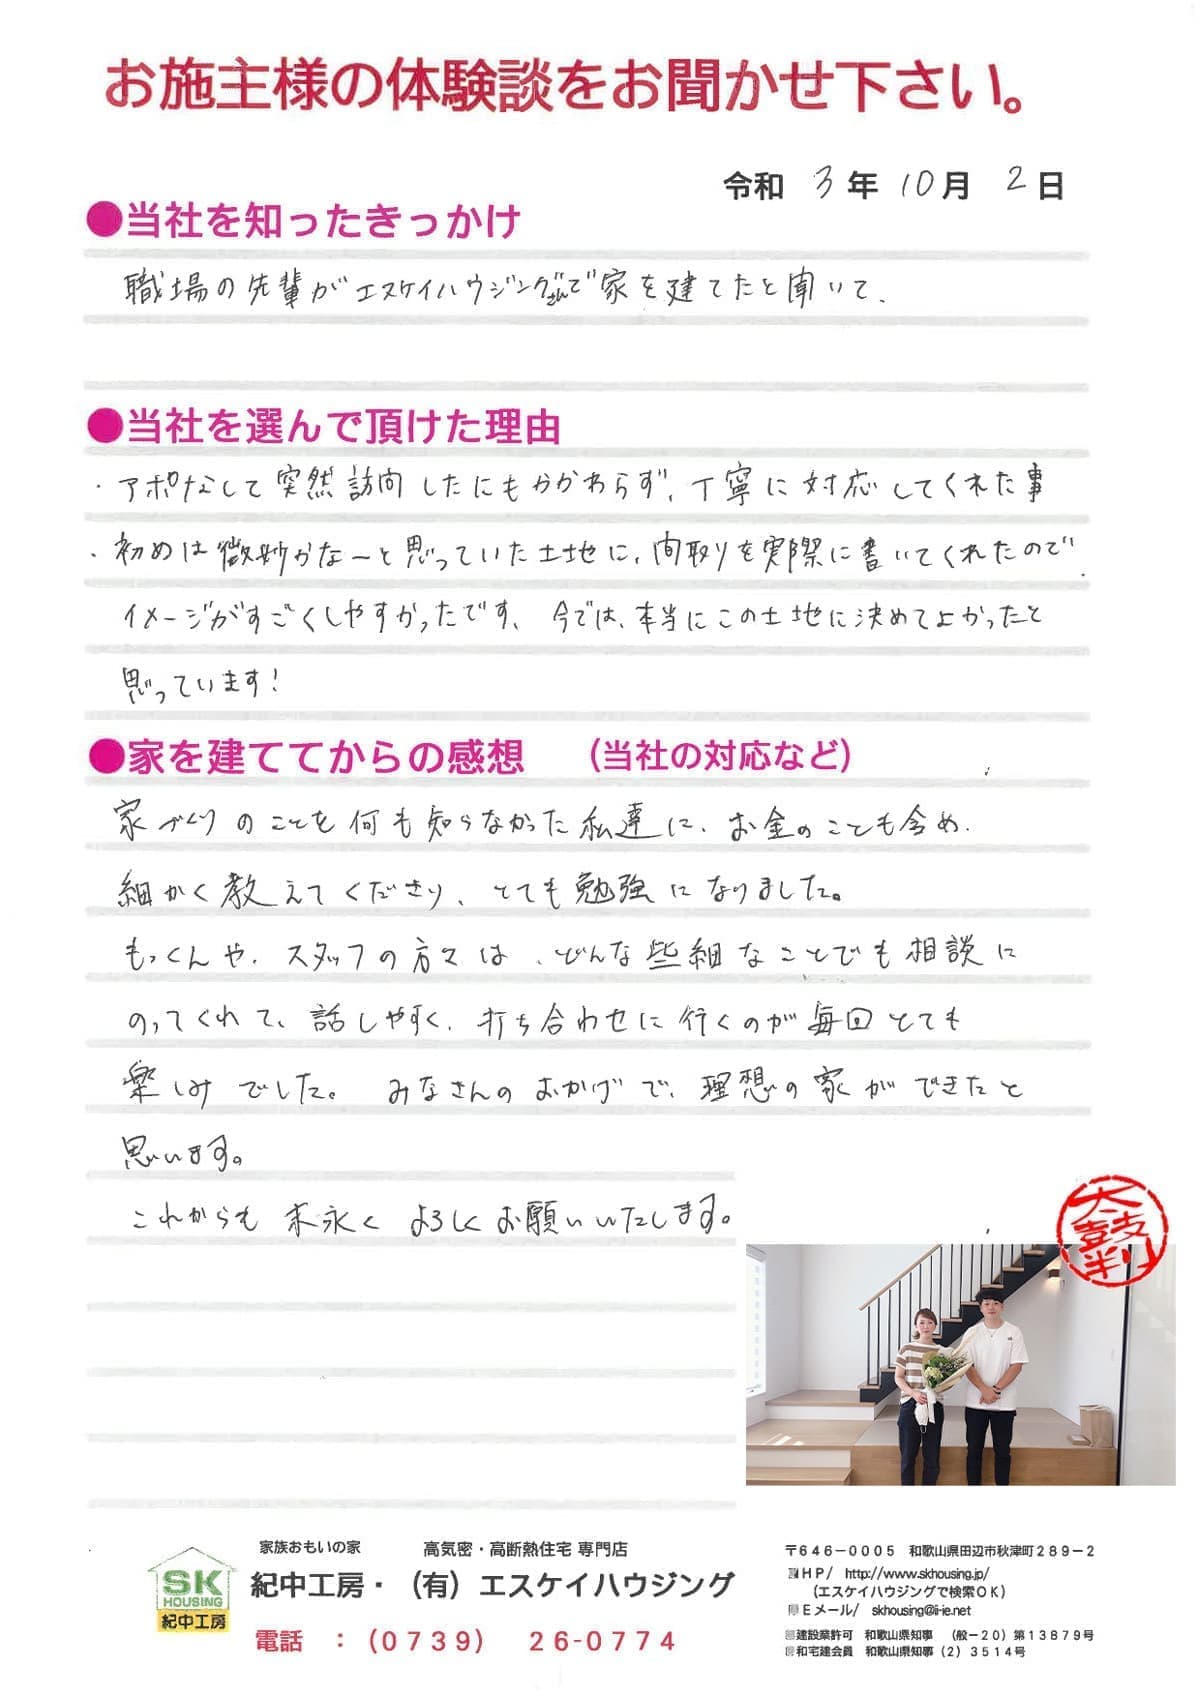 お施主様の体験談をお聞かせ下さい。
令和 3年 10月 2日
●当社を知ったきっかけ
職場の先輩がエスケイハウジングさんで家を建てたと聞いて、
●当社を選んで頂けた理由
・アポなしで突然訪問したにもかかわらず、丁寧に対応してくれた事
・初めは微妙かな～と思っていた土地に、間取りを実際に書いてくれたので、
イメージがすごくしやすかったです、今では、本当にこの土地に決めてよかったと
思っています!
●家を建ててからの感想 (当社の対応など)
家づくりのことを何も知らなかった私達に、お金のことも含め、
細かく教えてくださり、とても勉強になりました。
もっくんや、スタッフの方々は、どんな些細なことでも相談に
のってくれて、話しやすく、打ち合わせに行くのが毎回とても
楽しみでした。 みなさんのおかげで、理想の家ができたと
思います。
これからも末永くよろしくお願いいたします。
太鼓判
SK
HOUSING
紀中工房
家族おもいの家 高気密・高断熱住宅 専門店
紀中工房・(有)エスケイハウジング
電話 :(0739) 26-0774
〒646-0005 和歌山県田辺市秋津町289-2
HP/ http://www.skhousing.jp/
(エスケイハウジングで検索OK)
Eメール/ skhousing@i-ie.net
建設業許可 和歌山県知事 (般-20)第13879号
和宅建会員 和歌山県知事(2)3514号